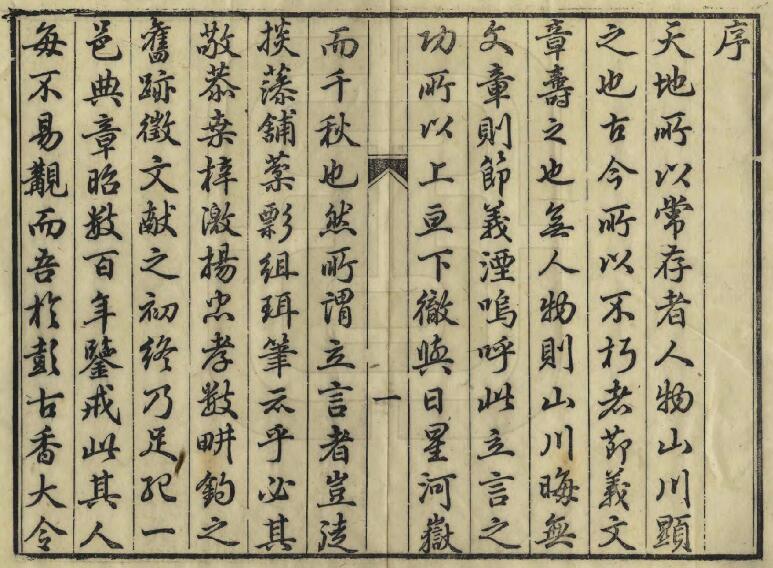 序
天地所以常存者人物山川顯
之也古今所以不朽者節義文
章壽之也無人物則山川晦無
文章則節義湮嗚呼此立言之
功所以上亘下徹與日星河嶽
一
而千秋也然所謂立言者豈徒
掞藻舖棻彯組珥筆云乎必其
敬恭桑梓激揚忠孝數畊釣之
舊跡徵文献之初終乃足紀一
邑典章昭数百年鑒戒此其人
每不易覯而吾於彭古香大令